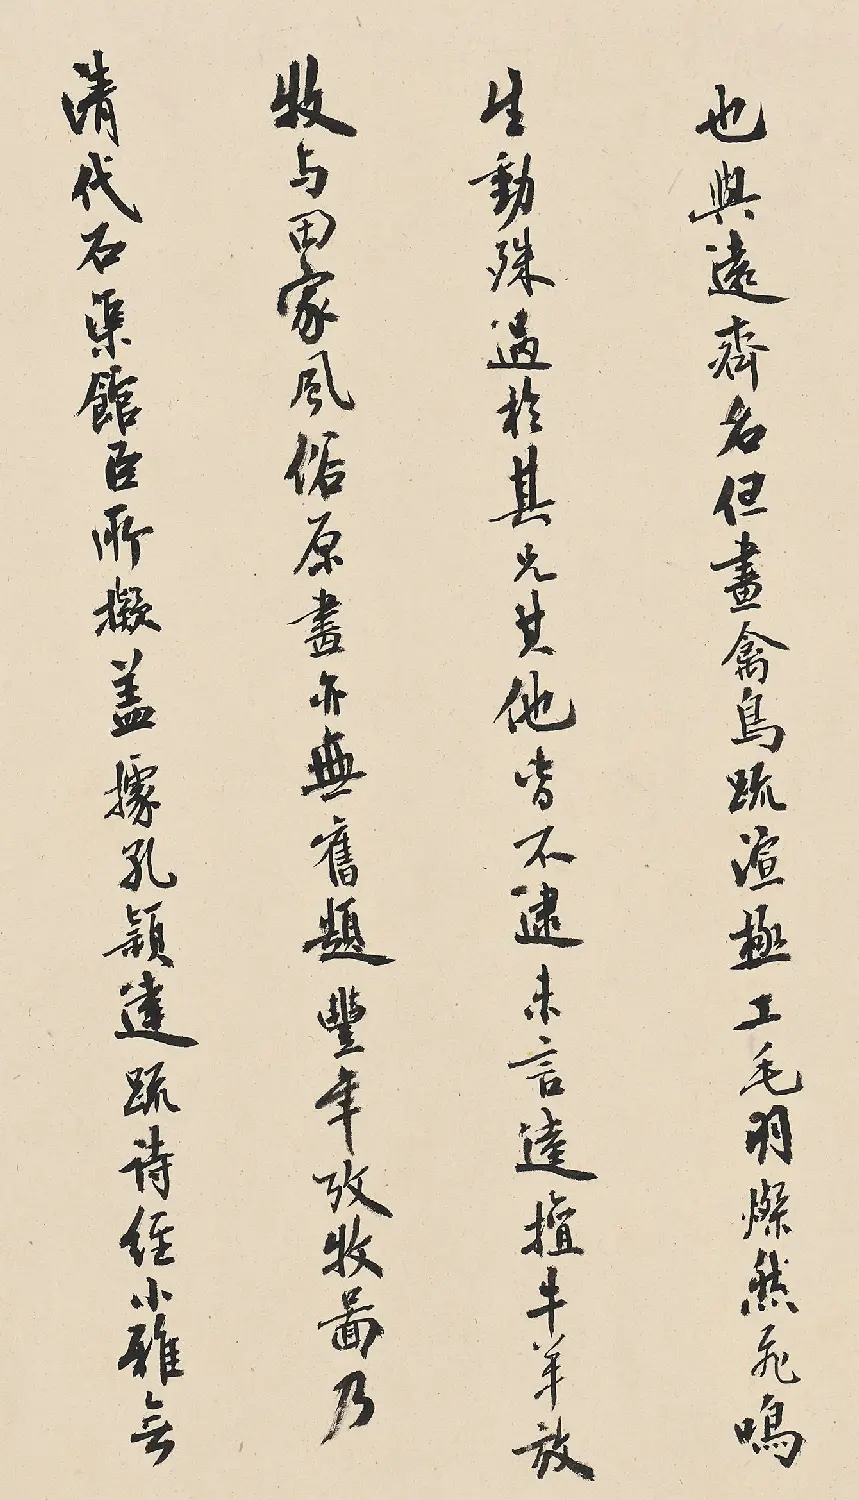 也與遠齊名但畫禽鳥疏渲極工毛羽燦然飛鳴
生動殊過於其兄其他皆不逮未言逵擅牛羊放
牧与田家風俗原畫亦無舊題豐年攷牧圖乃
清代石渠館臣所擬盖據孔穎達疏詩經小雅無